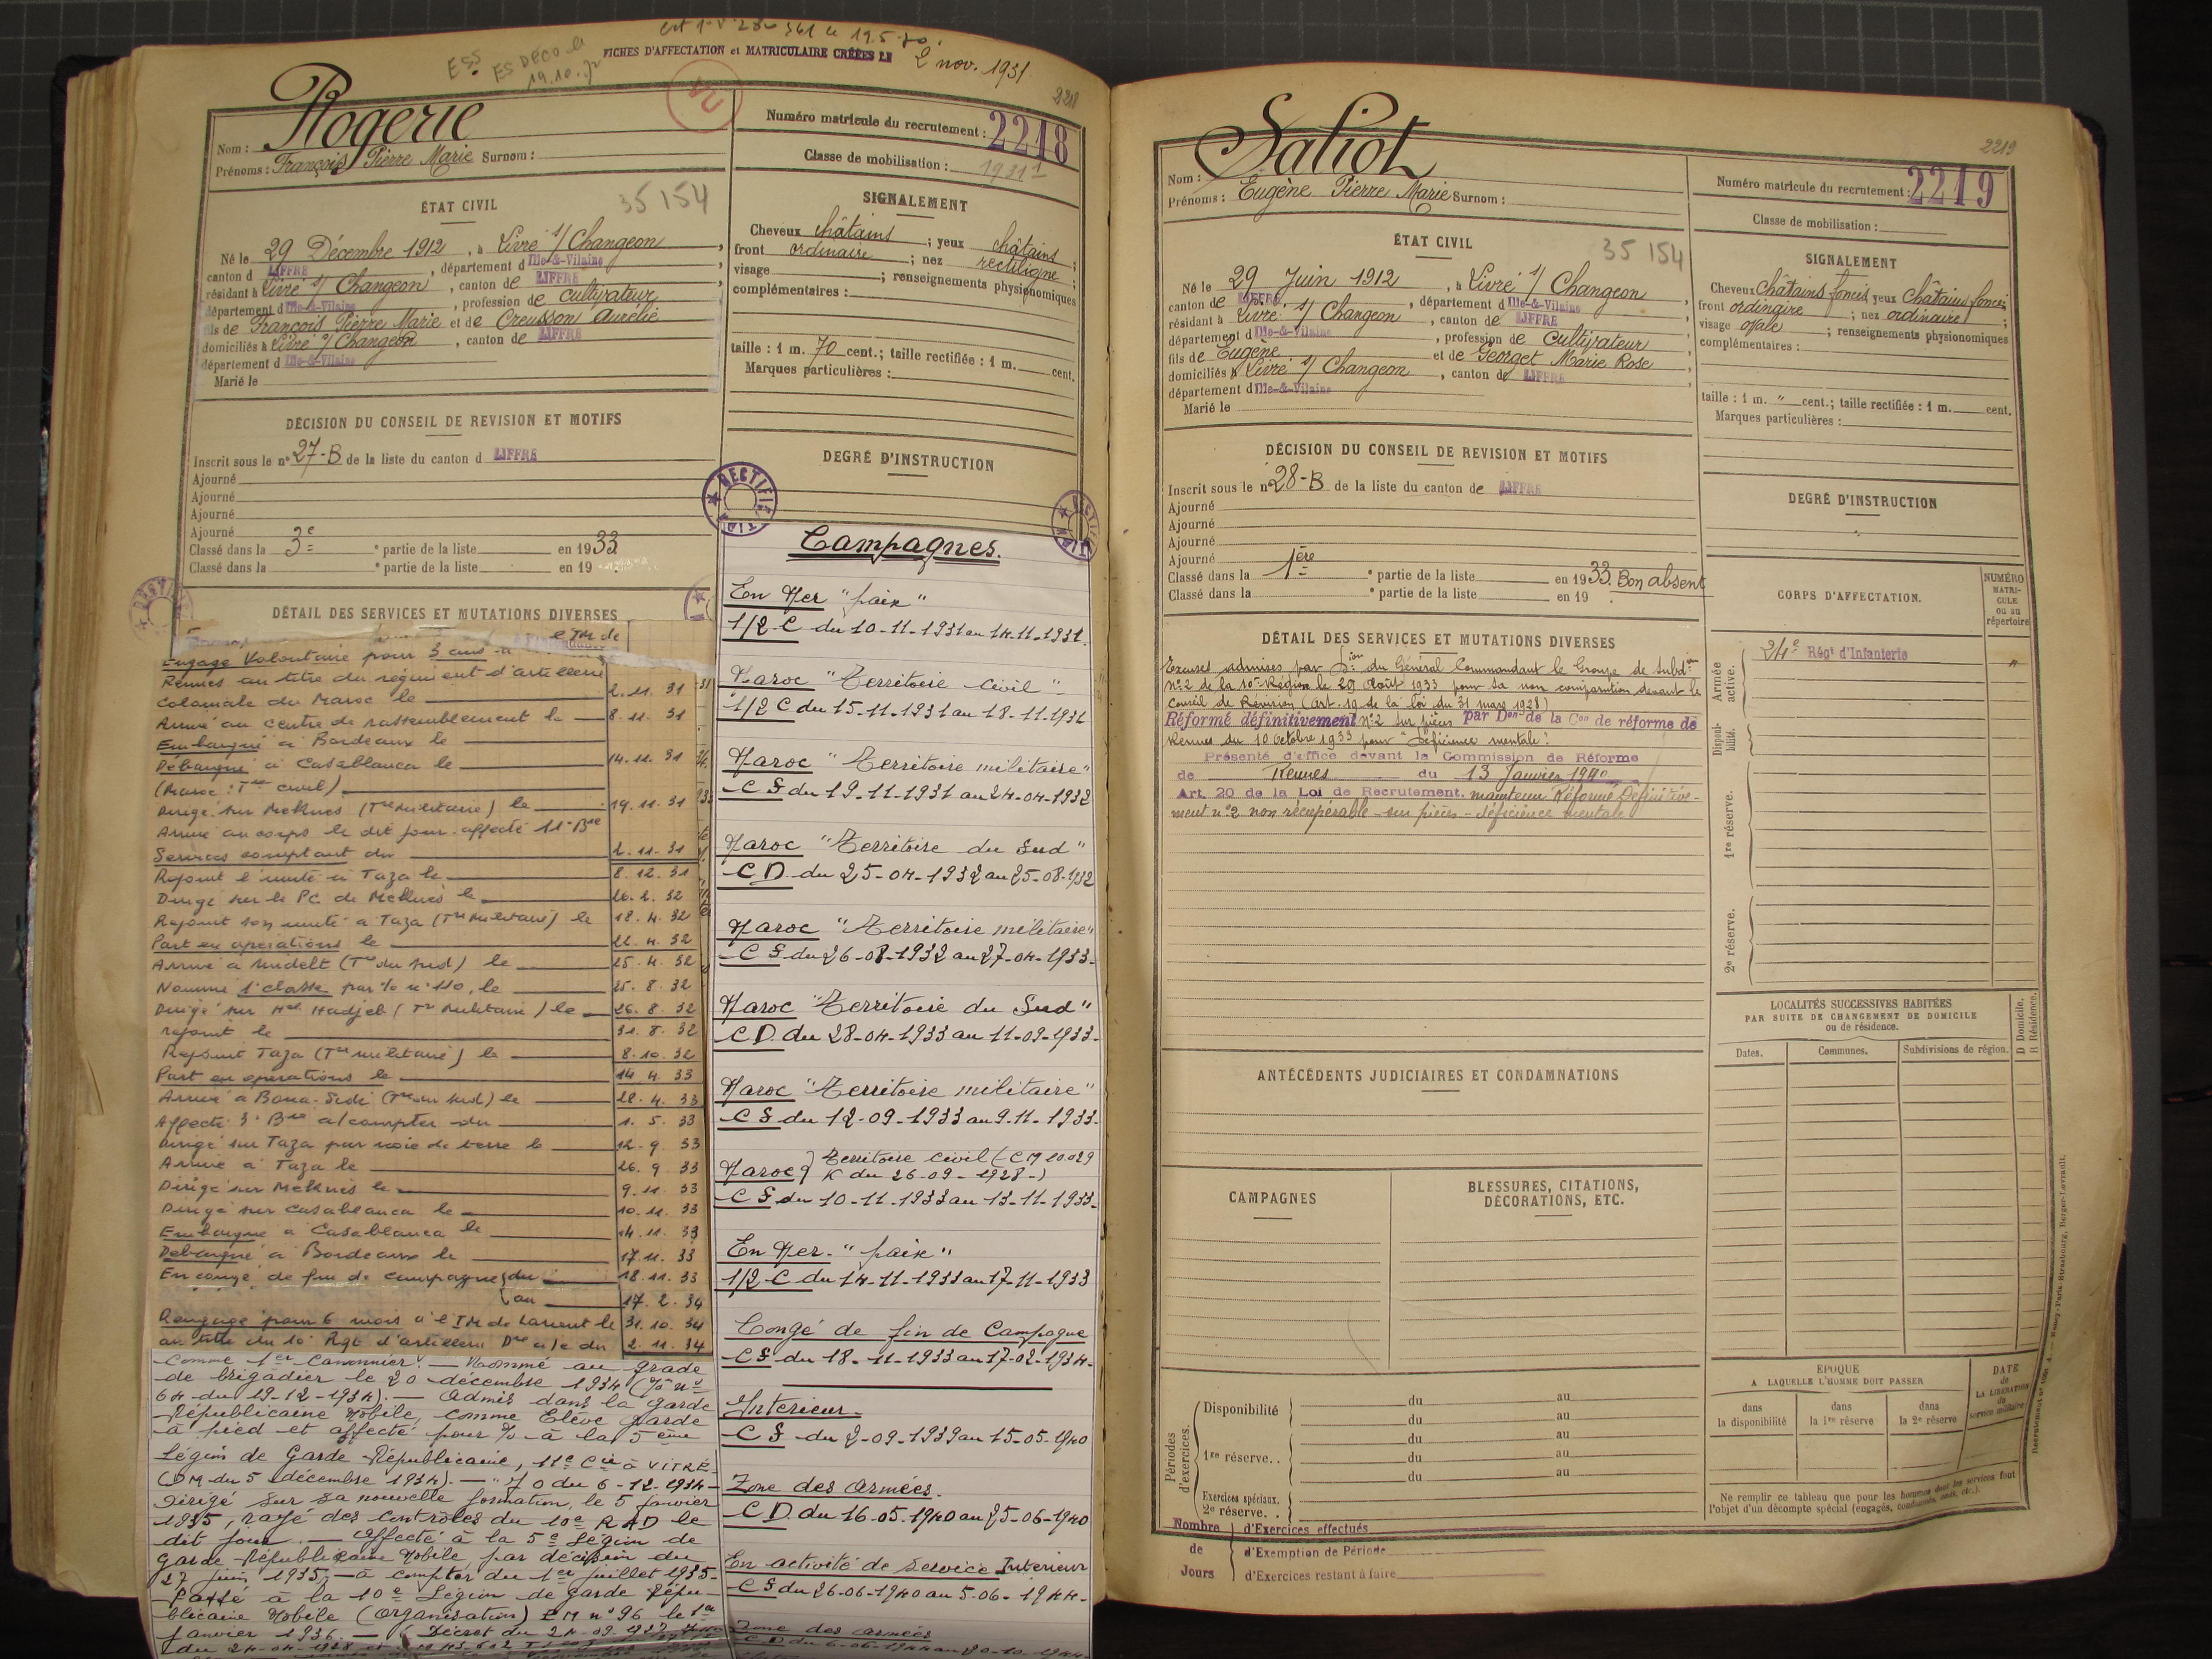 FICHES D'AFFECTATION et MATRICULAIRE CRÉÉES LE 2 nov. 1931
ES DECO
19.10.
2218
Nom : Rogerie
Prénoms : François Pierre Marie Surnom :
Numéro matricule du recrutement : 2218
Classe de mobilisation : 1931
ÉTAT CIVIL
35 154
Né le 29 Décembre 1912, à Livré s/ Changeon,
canton d LIFFRÉ, département d Ille-&-Vilaine,
résidant à Livré s/ Changeon, canton de LIFFRÉ
département d Ille-&-Vilaine, profession de cultivateur
fils de François Pierre Marie et de Creusson Aurélie
domiciliés à Livré s/ Changeon, canton de LIFFRÉ
département d Ille-&-Vilaine
Marié le
SIGNALEMENT
Cheveux châtains ; yeux châtains ;
front ordinaire ; nez rectiligne ;
visage ; renseignements physionomiques
complémentaires :
taille : 1 m. 70 cent.; taille rectifiée : 1 m. cent.
Marques particulières :
DÉCISION DU CONSEIL DE REVISION ET MOTIFS
Inscrit sous le n° 27-B de la liste du canton d LIFFRÉ
Ajourné
Ajourné
Ajourné
Ajourné
Classé dans la 3e ° partie de la liste en 1933
Classé dans la ° partie de la liste en 19
DEGRÉ D'INSTRUCTION
DÉTAIL DES SERVICES ET MUTATIONS DIVERSES
Engagé Volontaire pour 3 ans à
Rennes au titre du régiment d'artillerie
coloniale du Maroc le 2.11.31
Arrivé au centre de rassemblement le 8.11.31
Embarqué à Bordeaux le
Débarqué à Casablanca le 14.11.31
(Maroc : Tre civil)
Dirigé sur Meknès (Tre Militaire) le 19.11.31
Arrivé au corps le dit jour affecté 11e Bie
Services comptant du 2.11.31
Rejoint l'unité à Taza le 8.12.31
Dirigé sur le PC de Meknès le 26.2.32
Rejoint son unité à Taza (Tre Militaire) le 18.4.32
Part en opérations le 22.4.32
Arrivé à Midelt (Tre du Sud) le 25.4.32
Nommé 1e classe par % n° 110, le 25.8.32
Dirigé sur Hadjeb (Tre Militaire) le 26.8.32
rejoint le 31.8.32
Rejoint Taza (Tre militaire) le 8.10.32
Part en opérations le 14.4.33
Arrivé à Boua-Sidi (Tre du Sud) le 28.4.33
Affecté 3e Bie a/compter du 1.5.33
Dirigé sur Taza par voie de terre le 12.9.33
Arrivé à Taza le 26.9.33
Dirigé sur Meknès le 9.11.33
Dirigé sur Casablanca le 10.11.33
Embarqué à Casablanca le 14.11.33
Débarqué à Bordeaux le 17.11.33
En congé de fin de campagne du 18.11.33
au 17.2.34
Rengagé pour 6 mois à l'IM de Lorient le 31.10.34
au titre du 10e Rgt d'artillerie Dre a/c du 2.11.34
Comme 1er Canonnier. — Nommé au grade
de brigadier le 20 décembre 1934 (% n°
64 du 19-12-1934). — Admis dans la garde
Républicaine Mobile, comme Elève garde
à pied et affecté pour % à la 5ème
Légion de Garde Républicaine, 11e Cie à VITRÉ
(DM du 5 décembre 1934). — J O du 6-12-1934 —
Dirigé sur sa nouvelle formation, le 5 janvier
1935, rayé des contrôles du 10e RAD le
dit jour. — Affecté à la 5e Légion de
garde Républicaine Mobile, par décision du
27 juin 1935, à compter du 1er juillet 1935
Passé à la 10e Légion de garde Répu-
blicaine Mobile (organisation) EM n° 96 le 1er
janvier 1936. — Décret du 24.09.1937
Campagnes.
En Mer "paix"
1/2 C du 10-11-1931 au 14-11-1931.
Maroc "Territoire Civil"
1/2 C du 15-11-1931 au 18-11-1931
Maroc "Territoire militaire"
C S du 19-11-1931 au 24-04-1932
Maroc "Territoire du Sud"
C D du 25-04-1932 au 25-08-1932
Maroc "Territoire militaire"
C S du 26-08-1932 au 27-04-1933-
Maroc "Territoire du Sud"
C D du 28-04-1933 au 11-09-1933-
Maroc "Territoire militaire"
C S du 12-09-1933 au 9-11-1933-
Maroc } Territoire civil (CM 10.029
K du 26-09-1928-)
C S du 10-11-1933 au 13-11-1933-
En Mer- "paix"
1/2 C du 14-11-1933 au 17-11-1933
Congé de fin de Campagne
C S du 18-11-1933 au 17-02-1934-
Intérieur-
C S du 2-09-1939 au 15-05-1940
Zone des Armées.
C D du 16-05-1940 au 25-06-1940
En activité de service Intérieur
C S du 26-06-1940 au 5-06-1944-
Zone des Armées
C D du 6-06-1944 au 20-10-1944-
2219
Nom : Saliot
Prénoms : Eugène Pierre Marie Surnom :
Numéro matricule du recrutement : 2219
Classe de mobilisation :
ÉTAT CIVIL
35 154
Né le 29 Juin 1912, à Livré s/ Changeon
canton de LIFFRÉ, département d Ille-&-Vilaine
résidant à Livré s/ Changeon, canton de LIFFRÉ
département d Ille-&-Vilaine, profession de Cultivateur
fils de Eugène et de Georget Marie Rose
domiciliés à Livré s/ Changeon, canton de LIFFRÉ
département d Ille-&-Vilaine
Marié le
SIGNALEMENT
Cheveux châtains foncés yeux châtains foncés
front ordinaire ; nez ordinaire ;
visage ovale ; renseignements physionomiques
complémentaires :
taille : 1 m. " cent.; taille rectifiée : 1 m. cent.
Marques particulières :
DÉCISION DU CONSEIL DE REVISION ET MOTIFS
Inscrit sous le n° 28-B de la liste du canton de LIFFRÉ
Ajourné
Ajourné
Ajourné
Ajourné
Classé dans la 1ère ° partie de la liste en 1933. Bon absent
Classé dans la ° partie de la liste en 19
DEGRÉ D'INSTRUCTION
DÉTAIL DES SERVICES ET MUTATIONS DIVERSES
Excuses admises par Don du Général Commandant le Groupe de Subdon
N°2 de la 10e Région le 29 Août 1933 pour sa non comparution devant le
Conseil de Révision (art. 19 de la loi du 31 mars 1928)
Réformé définitivement n°2 sur pièces par Don de la Con de réforme de
Rennes du 10 octobre 1933 pour "Déficience mentale".
Présenté d'office devant la Commission de Réforme
de Rennes du 13 Janvier 1940
Art. 20 de la Loi de Recrutement. maintenu Réformé Définitive-
ment n°2 non récupérable - sur pièces - déficience mentale
CORPS D'AFFECTATION.
NUMÉRO MATRICULE ou au répertoire
Armée active.
24e Régt d'Infanterie "
Disponibilité.
1re réserve.
2e réserve.
LOCALITÉS SUCCESSIVES HABITÉES
PAR SUITE DE CHANGEMENT DE DOMICILE
ou de résidence.
D Domicile.
R Résidence.
Dates. Communes. Subdivisions de région.
ANTÉCÉDENTS JUDICIAIRES ET CONDAMNATIONS
CAMPAGNES
BLESSURES, CITATIONS,
DÉCORATIONS, ETC.
Périodes d'exercices.
Disponibilité du au
du au
1re réserve.. du au
du au
du au
Exercices spéciaux.
2e réserve..
Nombre de Jours
d'Exercices effectués
d'Exemption de Période
d'Exercices restant à faire
ÉPOQUE
A LAQUELLE L'HOMME DOIT PASSER
dans la disponibilité
dans la 1re réserve
dans la 2e réserve
DATE de LA LIBÉRATION du service militaire
Ne remplir ce tableau que pour les hommes dont les services font
l'objet d'un décompte spécial (engagés, condamnés, omis, etc.).